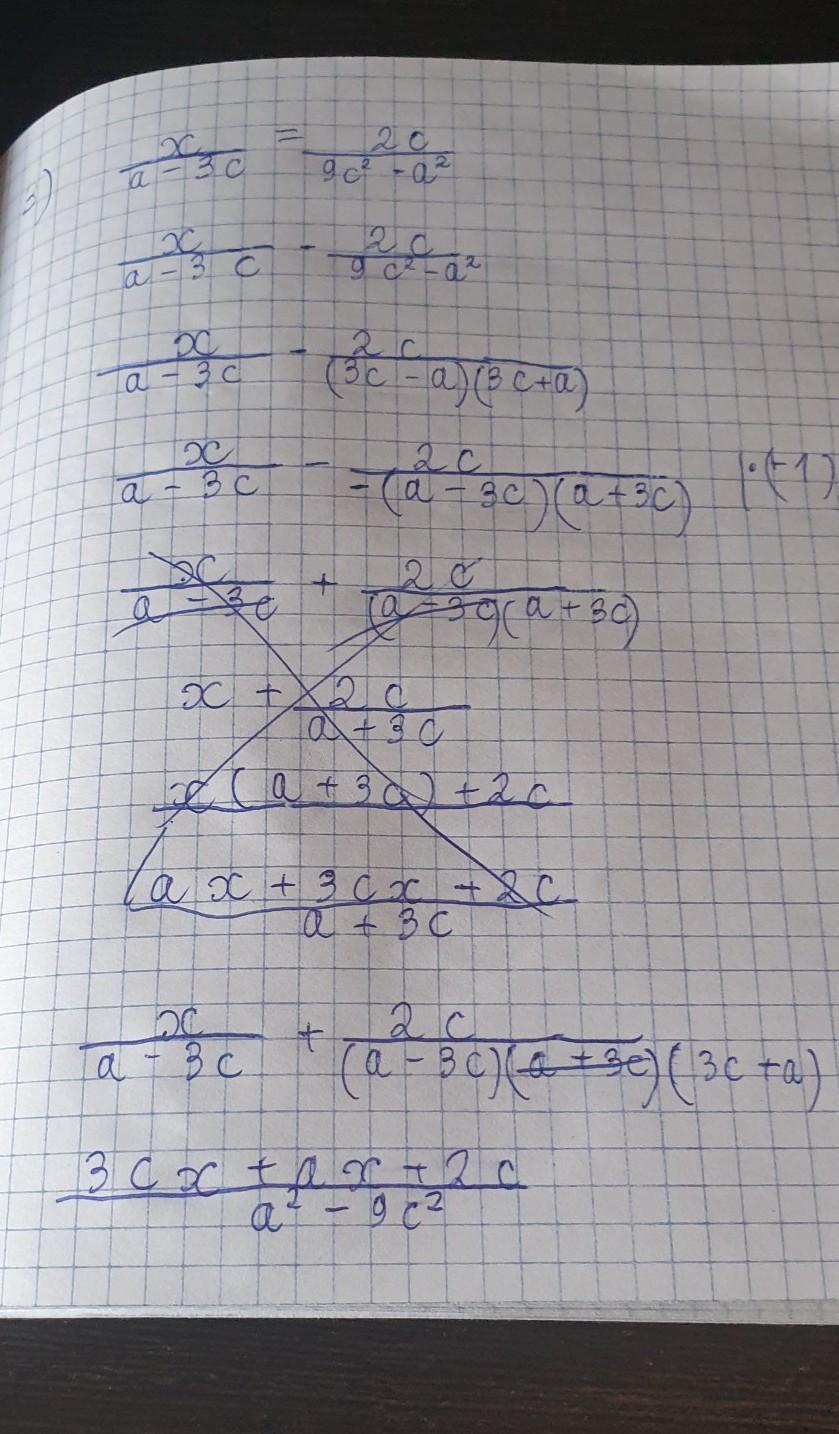 3) x/(a - 3c) = 2c/(9c² - a²)
x/(a - 3c) - 2c/(9c² - a²)
x/(a - 3c) - 2c/((3c - a)(3c + a))
x/(a - 3c) - 2c/(-(a - 3c)(a + 3c)) |·(-1)
x/(a - 3c) + 2c/((a - 3c)(a + 3c))
x + 2c/(a + 3c)
x(a + 3c) + 2c
(ax + 3cx + 2c)/(a + 3c)
x/(a - 3c) + 2c/((a - 3c)(a + 3c)(3c + a))
(3cx + ax + 2c)/(a² - 9c²)